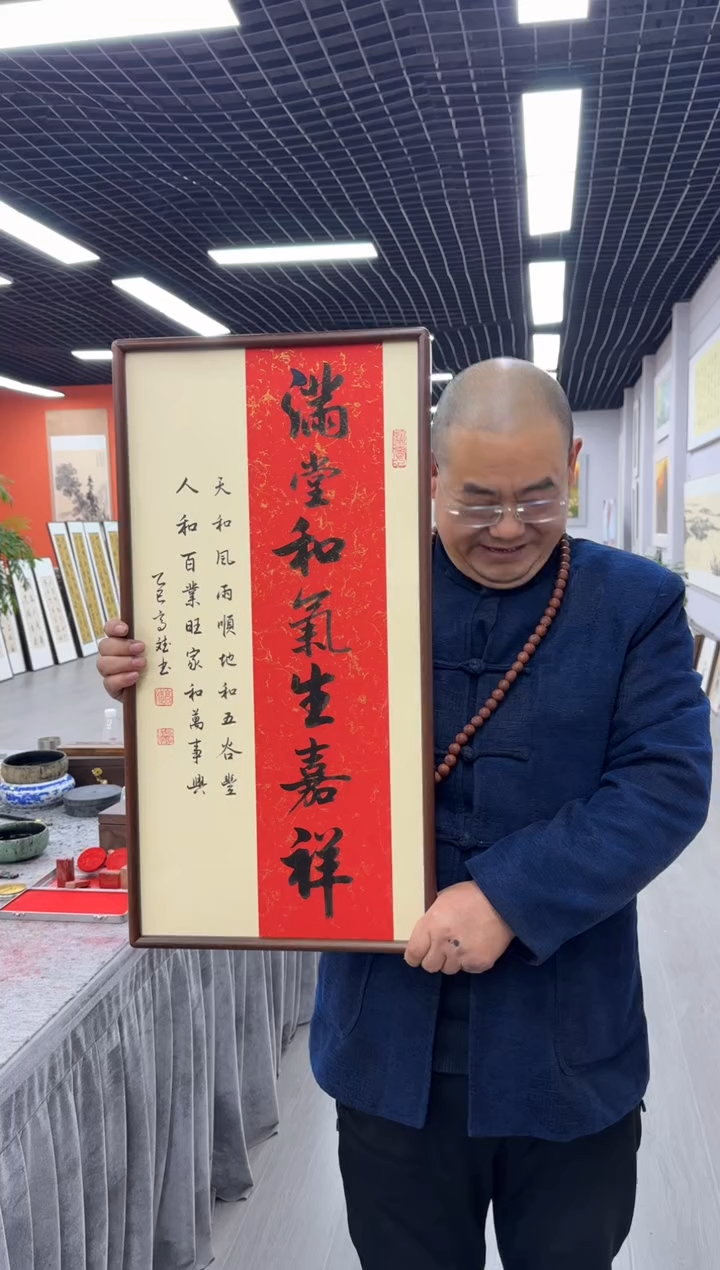 滿堂和氣生嘉祥
天和風雨順地和五谷豐
人和百業旺家和萬事興
乙巳高斌书